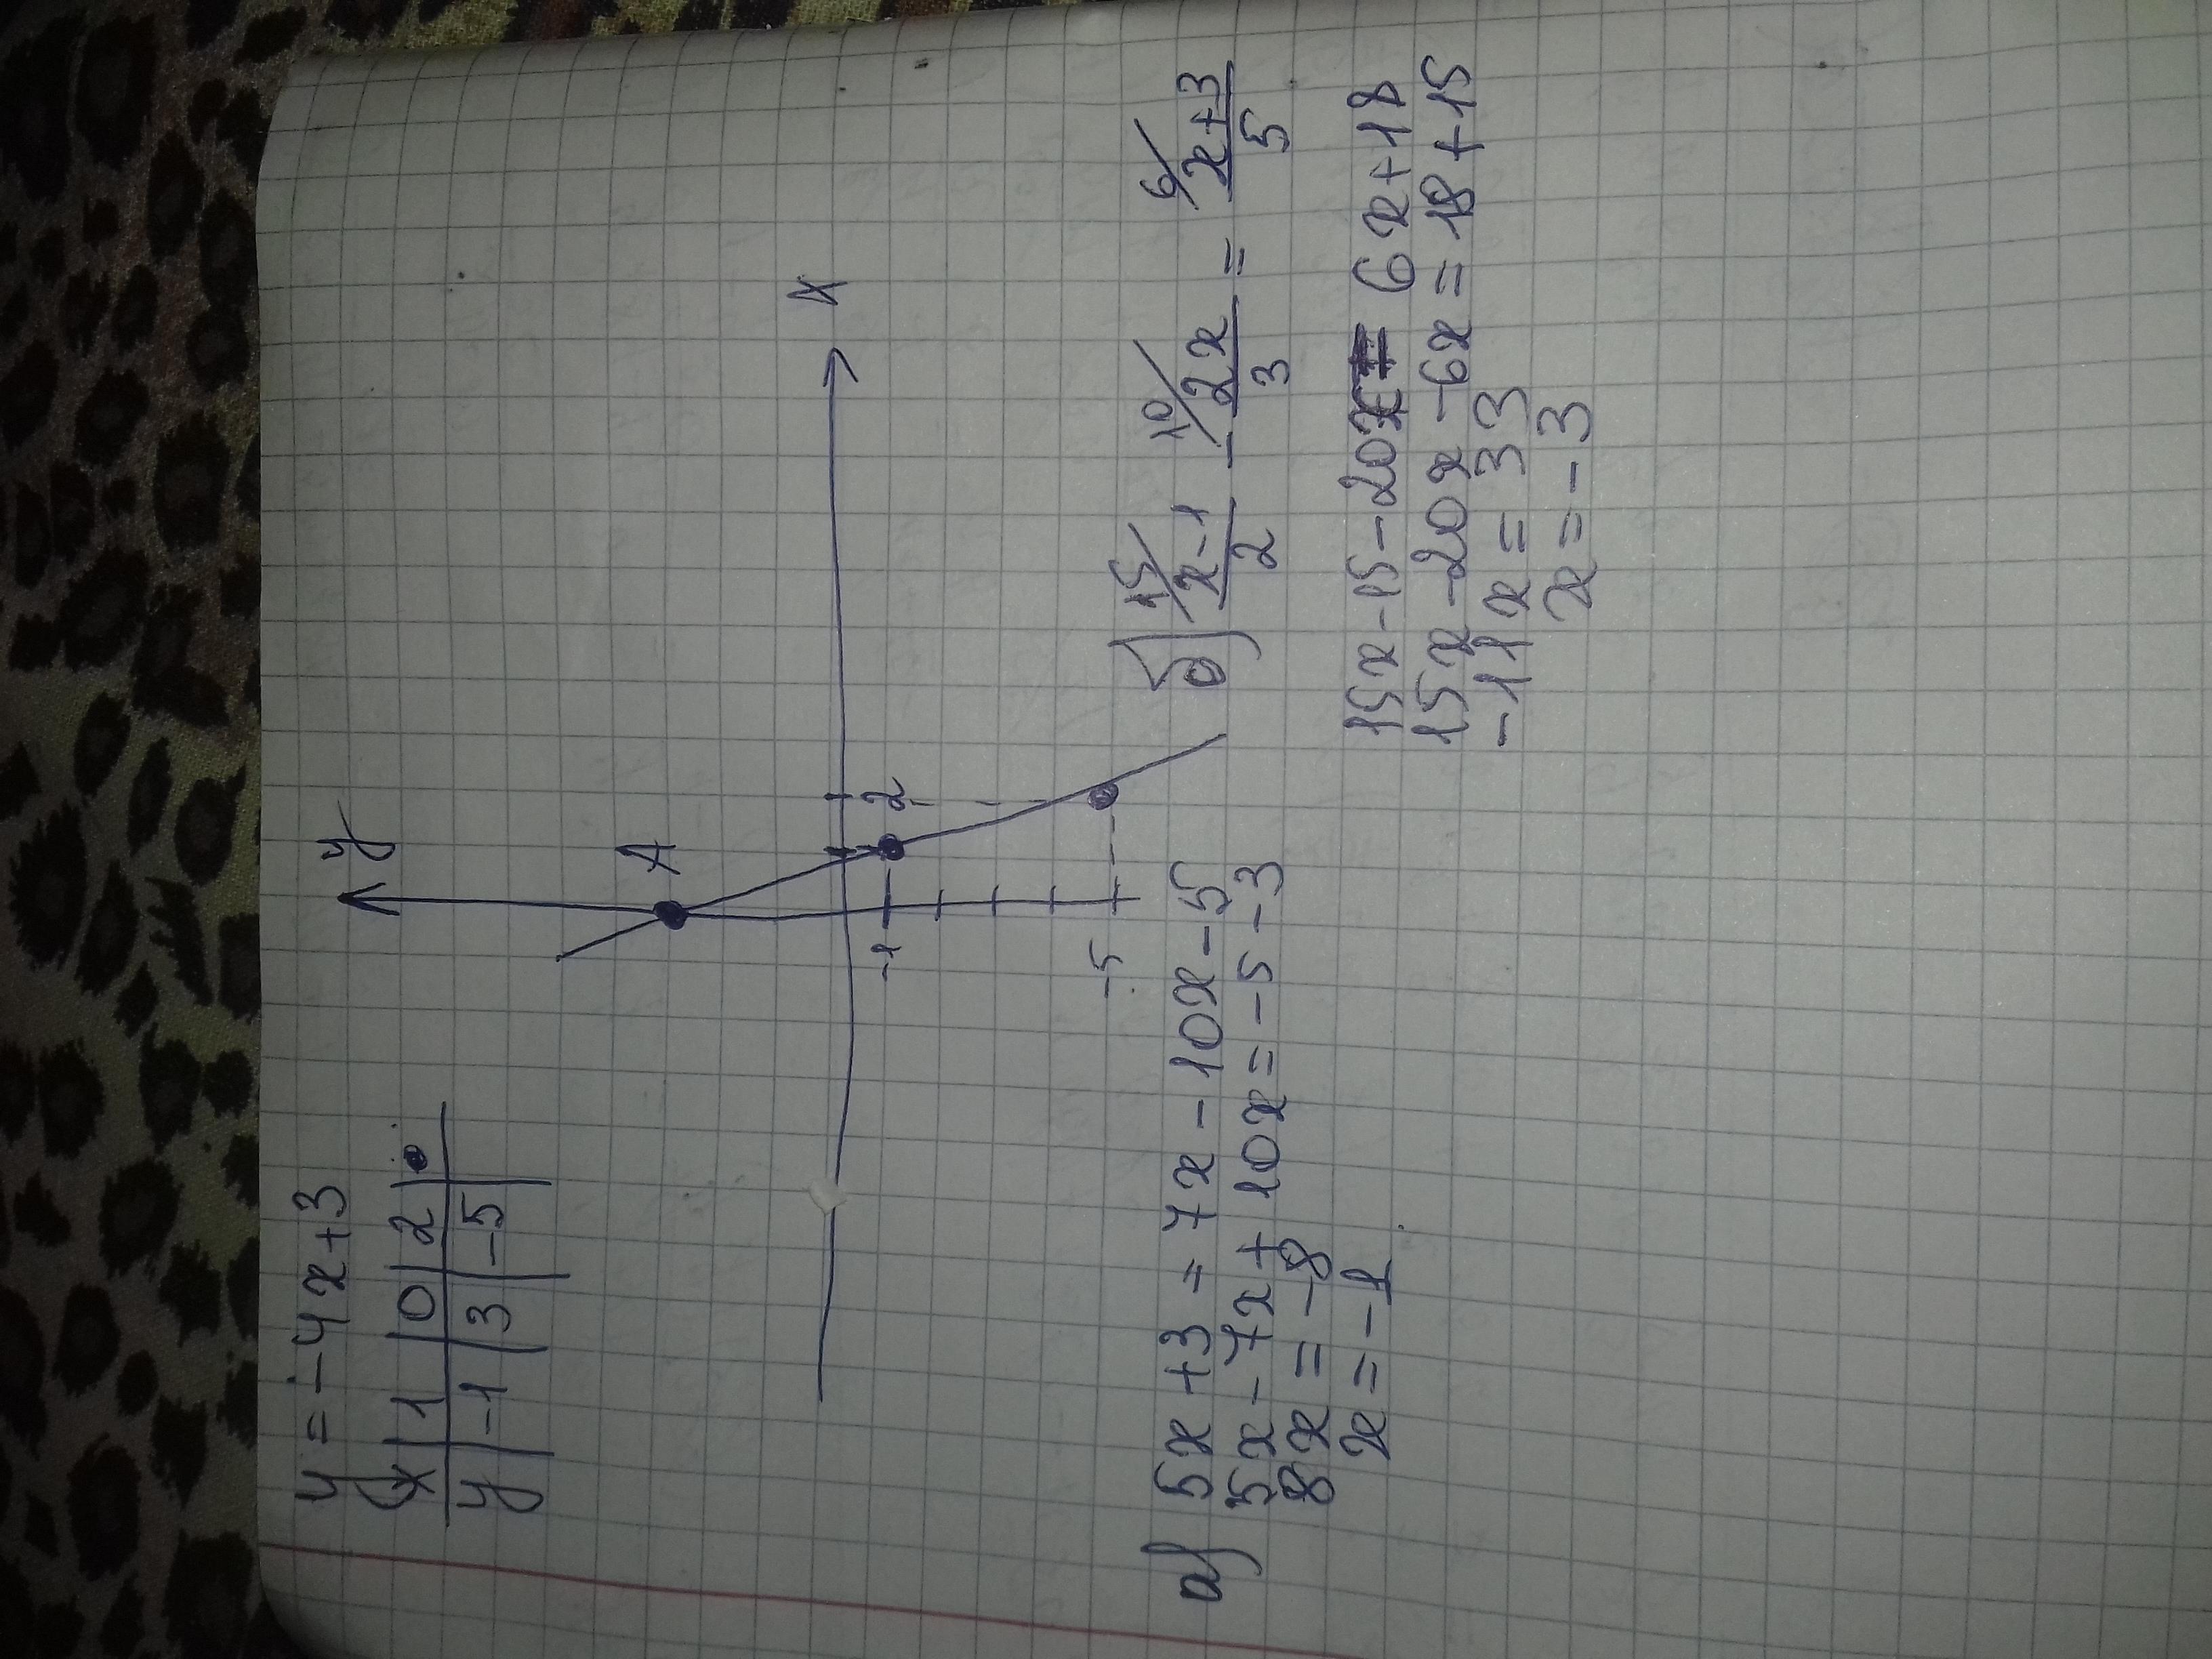 y = -4x+3
x | 1 | 0 | 2
y | -1 | 3 | -5
y
A
x
2
-1
-5
а) 5x+3 = 7x-10x-5
5x-7x+10x=-5-3
8x=-8
x=-1
б) 15/ x-1/2 - 10/ 2x/3 = 6/ x+3/5
15x-15-20x = 6x+18
15x-20x-6x=18+15
-11x=33
x=-3